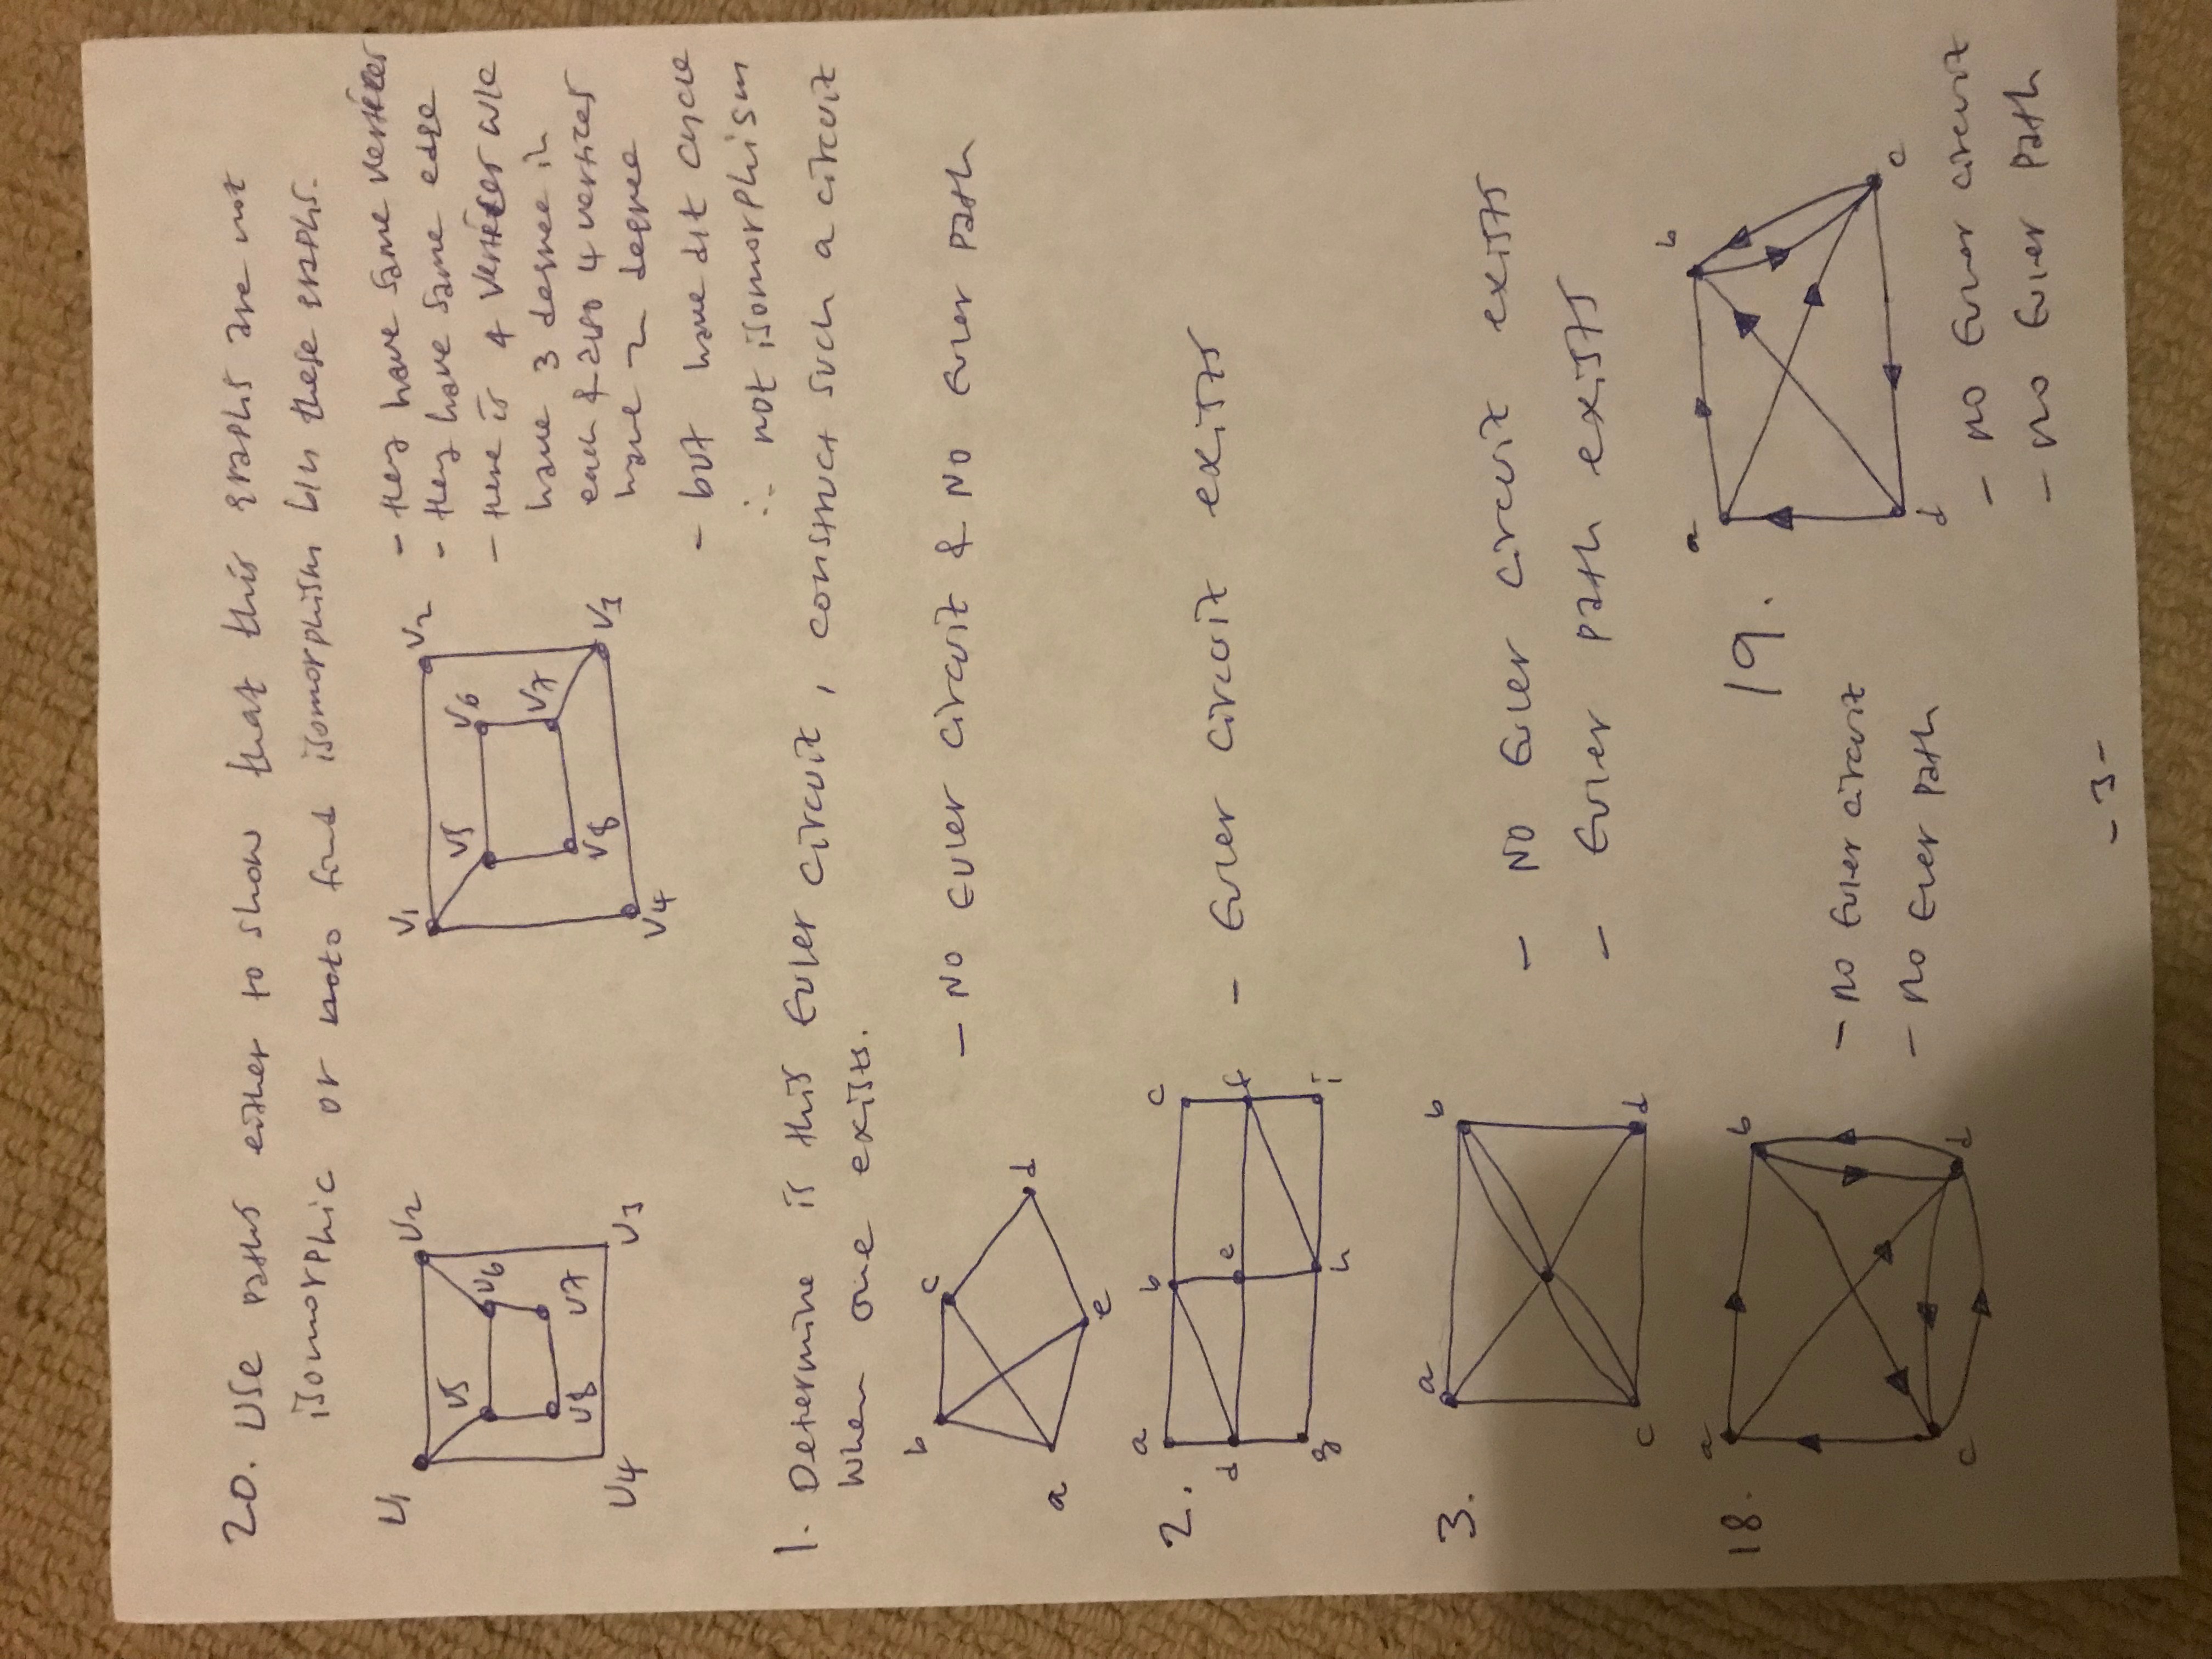 20. Use paths either to show that this graphs are not
isomorphic or noto find isomorphism b/n these graphs.
U1
U2
U5
U6
U8
U7
U4
U3
V1
V2
V5
V6
V7
V8
V3
V4
- they have same vertices
- they have same edge
- there is 4 vertices w/c
have 3 degree in
each & also 4 vertices
have 2 degree
- but have d/t cycle
∴ not isomorphism
1. Determine is this Euler circuit, construct such a circuit
when one exists.
b
c
a
d
e
- No Euler circuit & No Euler path
2.
a
b
c
d
e
f
g
h
i
- Euler circuit exists
3.
a
b
c
d
- No Euler circuit exists
- Euler path exists
18.
a
b
c
d
- no Euler circuit
- no Euler path
19.
a
b
c
d
- no Euler circuit
- no Euler path
- 3 -